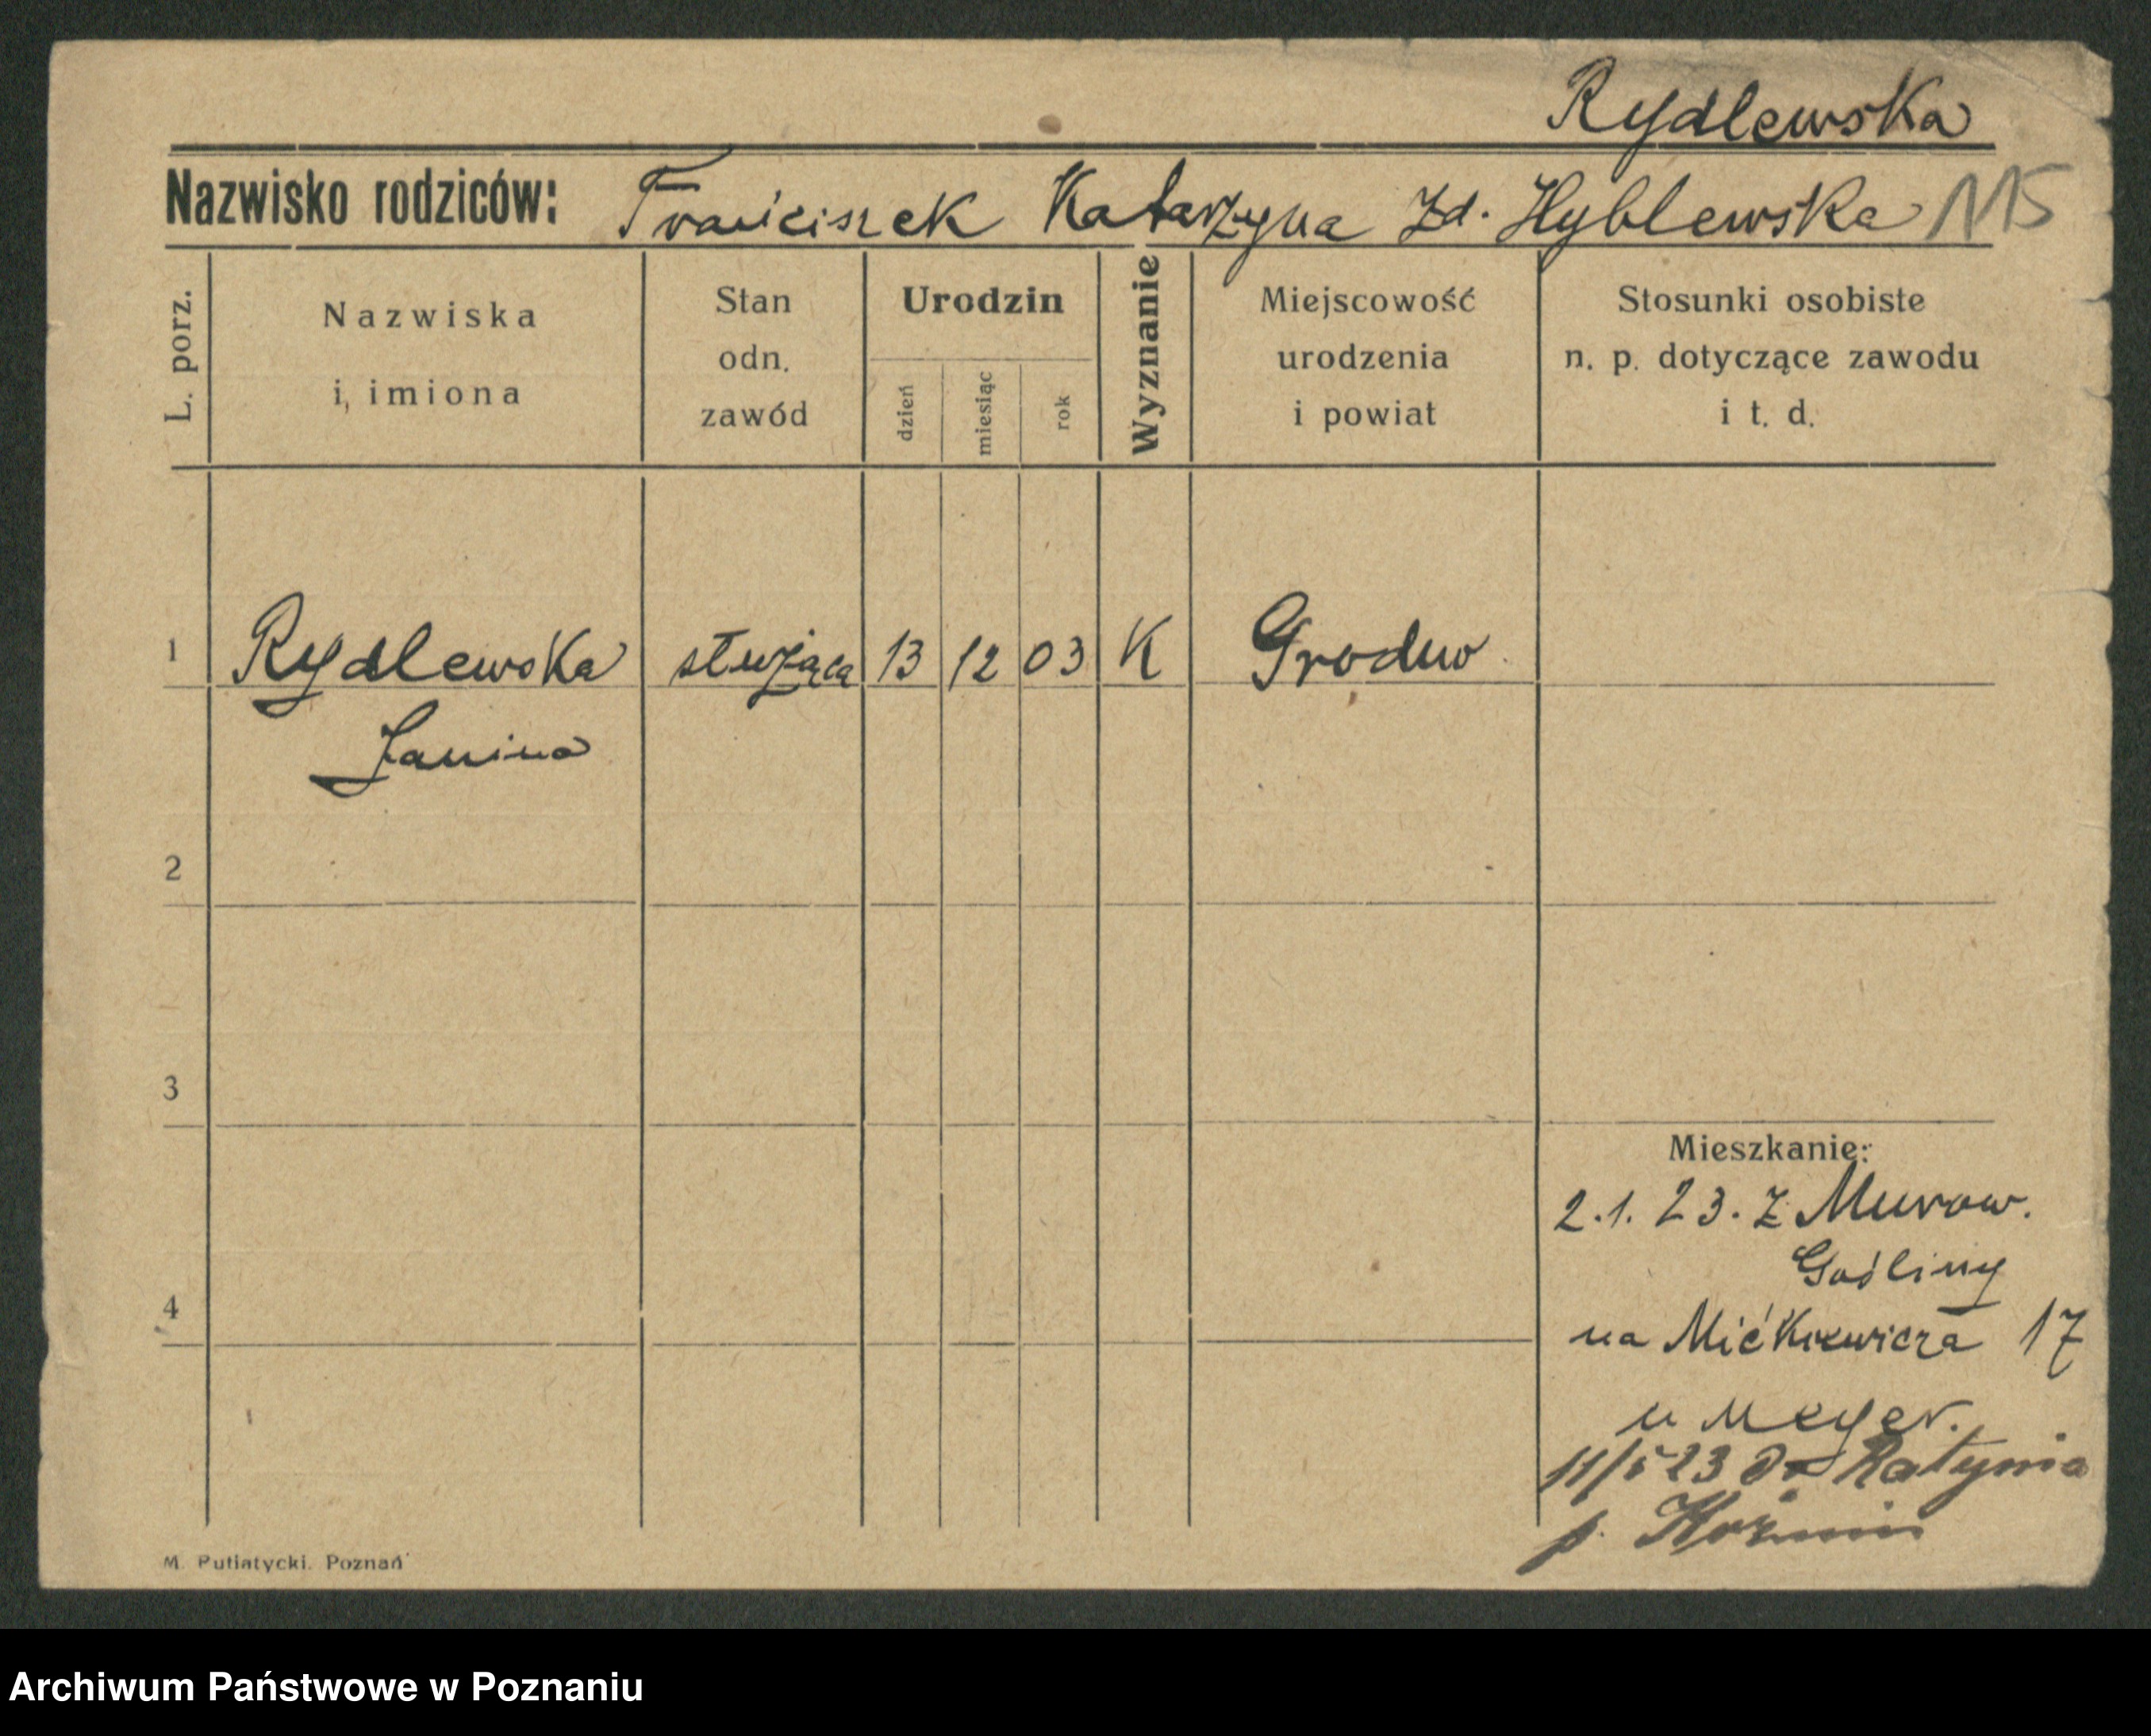 Rydlewska
Nazwisko rodziców: Franciszek Katarzyna Zd. Hyblewska 115
L. porz.
Nazwiska
i, imiona
Stan
odn.
zawód
Urodzin
dzień
miesiąc
rok
Wyznanie
Miejscowość
urodzenia
i powiat
Stosunki osobiste
n. p. dotyczące zawodu
i t. d.
1 Rydlewska służąca 13 12 03 K Grodno
Janina
2
3
Mieszkanie:
2.1.23. z Murow.
Gośliny
4
na Mićkiewicza 17
u Meyer.
23 do Ratynia
p. Koźmin
M. Putiatycki. Poznań
Archiwum Państwowe w Poznaniu